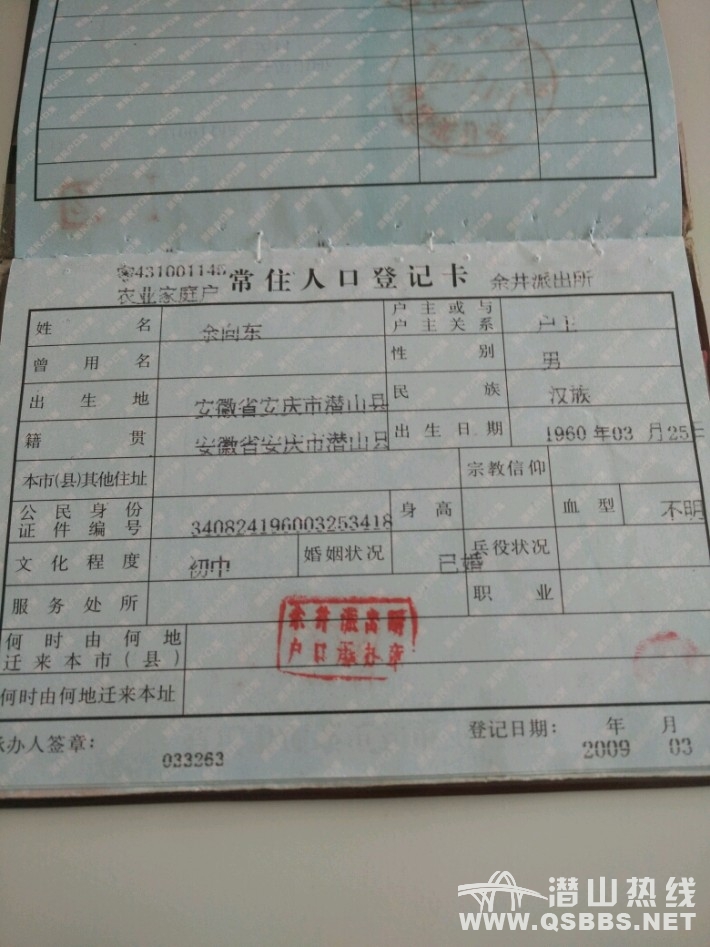 431001146
农业家庭户
常住人口登记卡
余井派出所
姓名 余向东 户主或与户主关系 户主
曾用名 性别 男
出生地 安徽省安庆市潜山县 民族 汉族
籍贯 安徽省安庆市潜山县 出生日期 1960年03月25日
本市(县)其他住址 宗教信仰
公民身份证件编号 340824196003253418 身高 血型 不明
文化程度 初中 婚姻状况 已婚 兵役状况
服务处所 职业
余井派出所
户口承办章
何时由何地迁来本市(县)
何时由何地迁来本址
承办人签章: 033263 登记日期: 2009年03月
潜山热线
WWW.QSBBS.NET